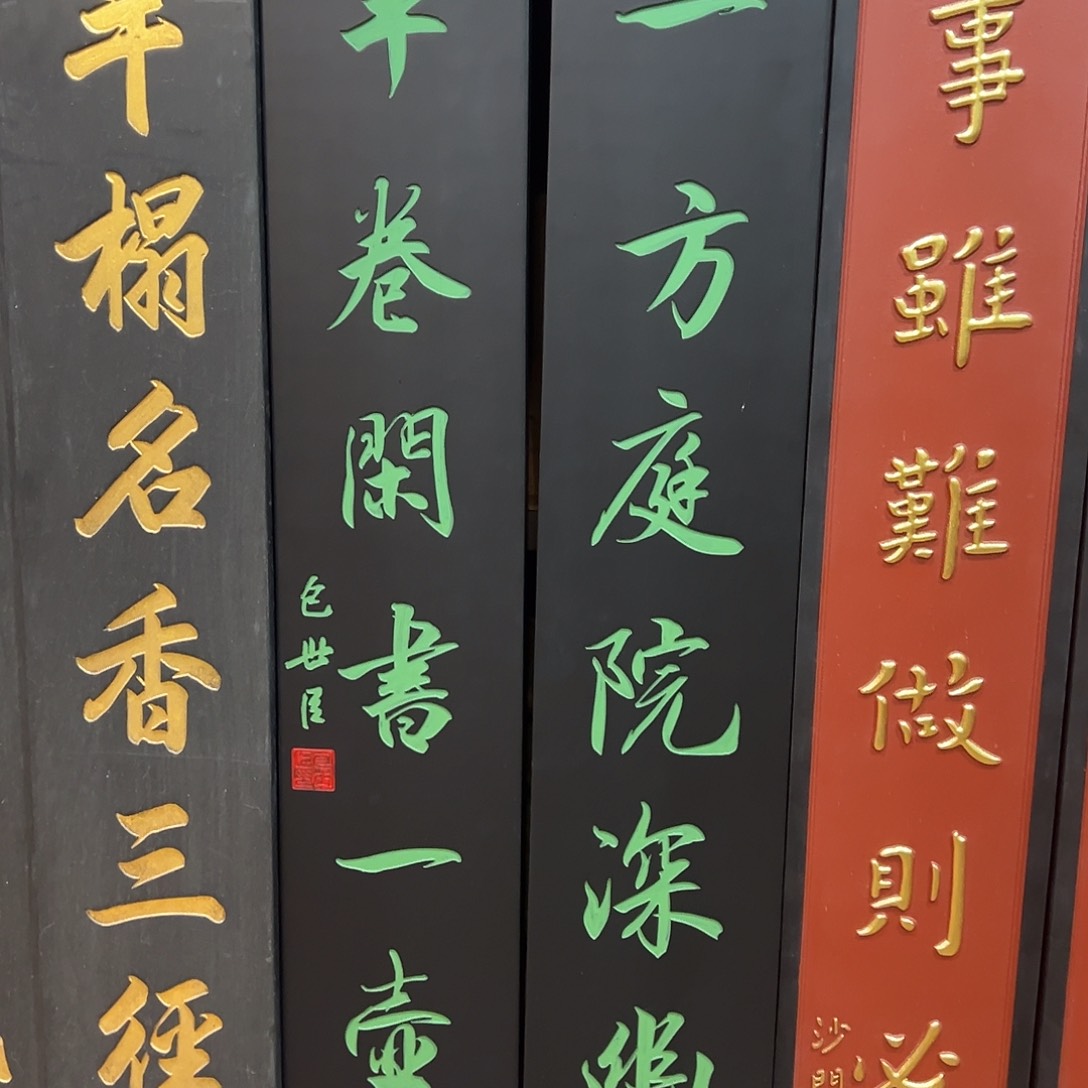 事雖難做則必
沙門
一方庭院深幽
半卷閑書一壺
包世臣
半榻名香三徑